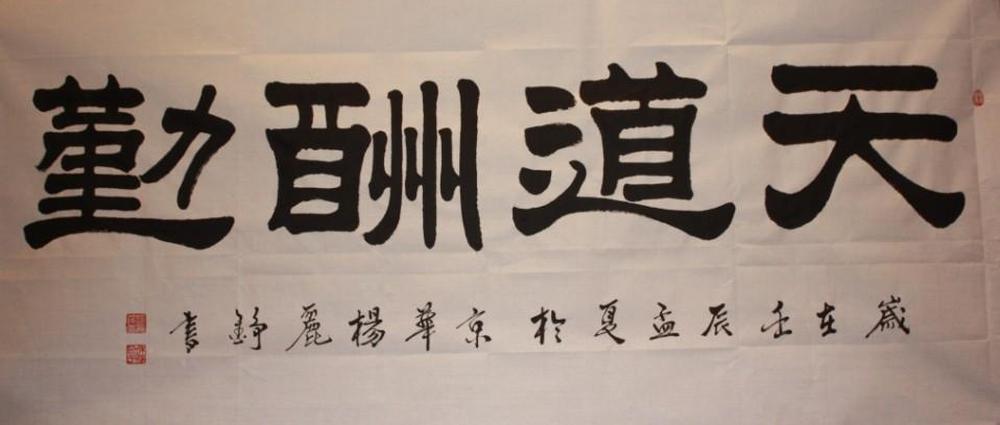 天道酬勤
歲在壬辰孟夏於京華楊麗錚書